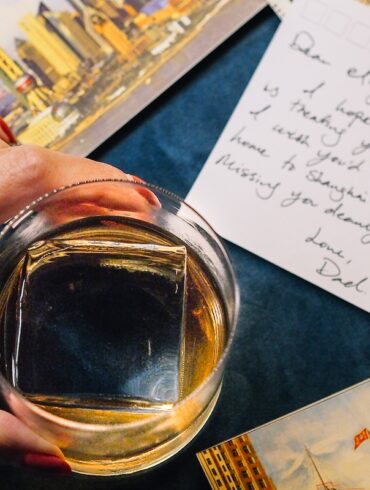 Dear
is I hope
is treating yo
I wish you'd
home to Shanghai
Missing you dearly
Love,
Dad